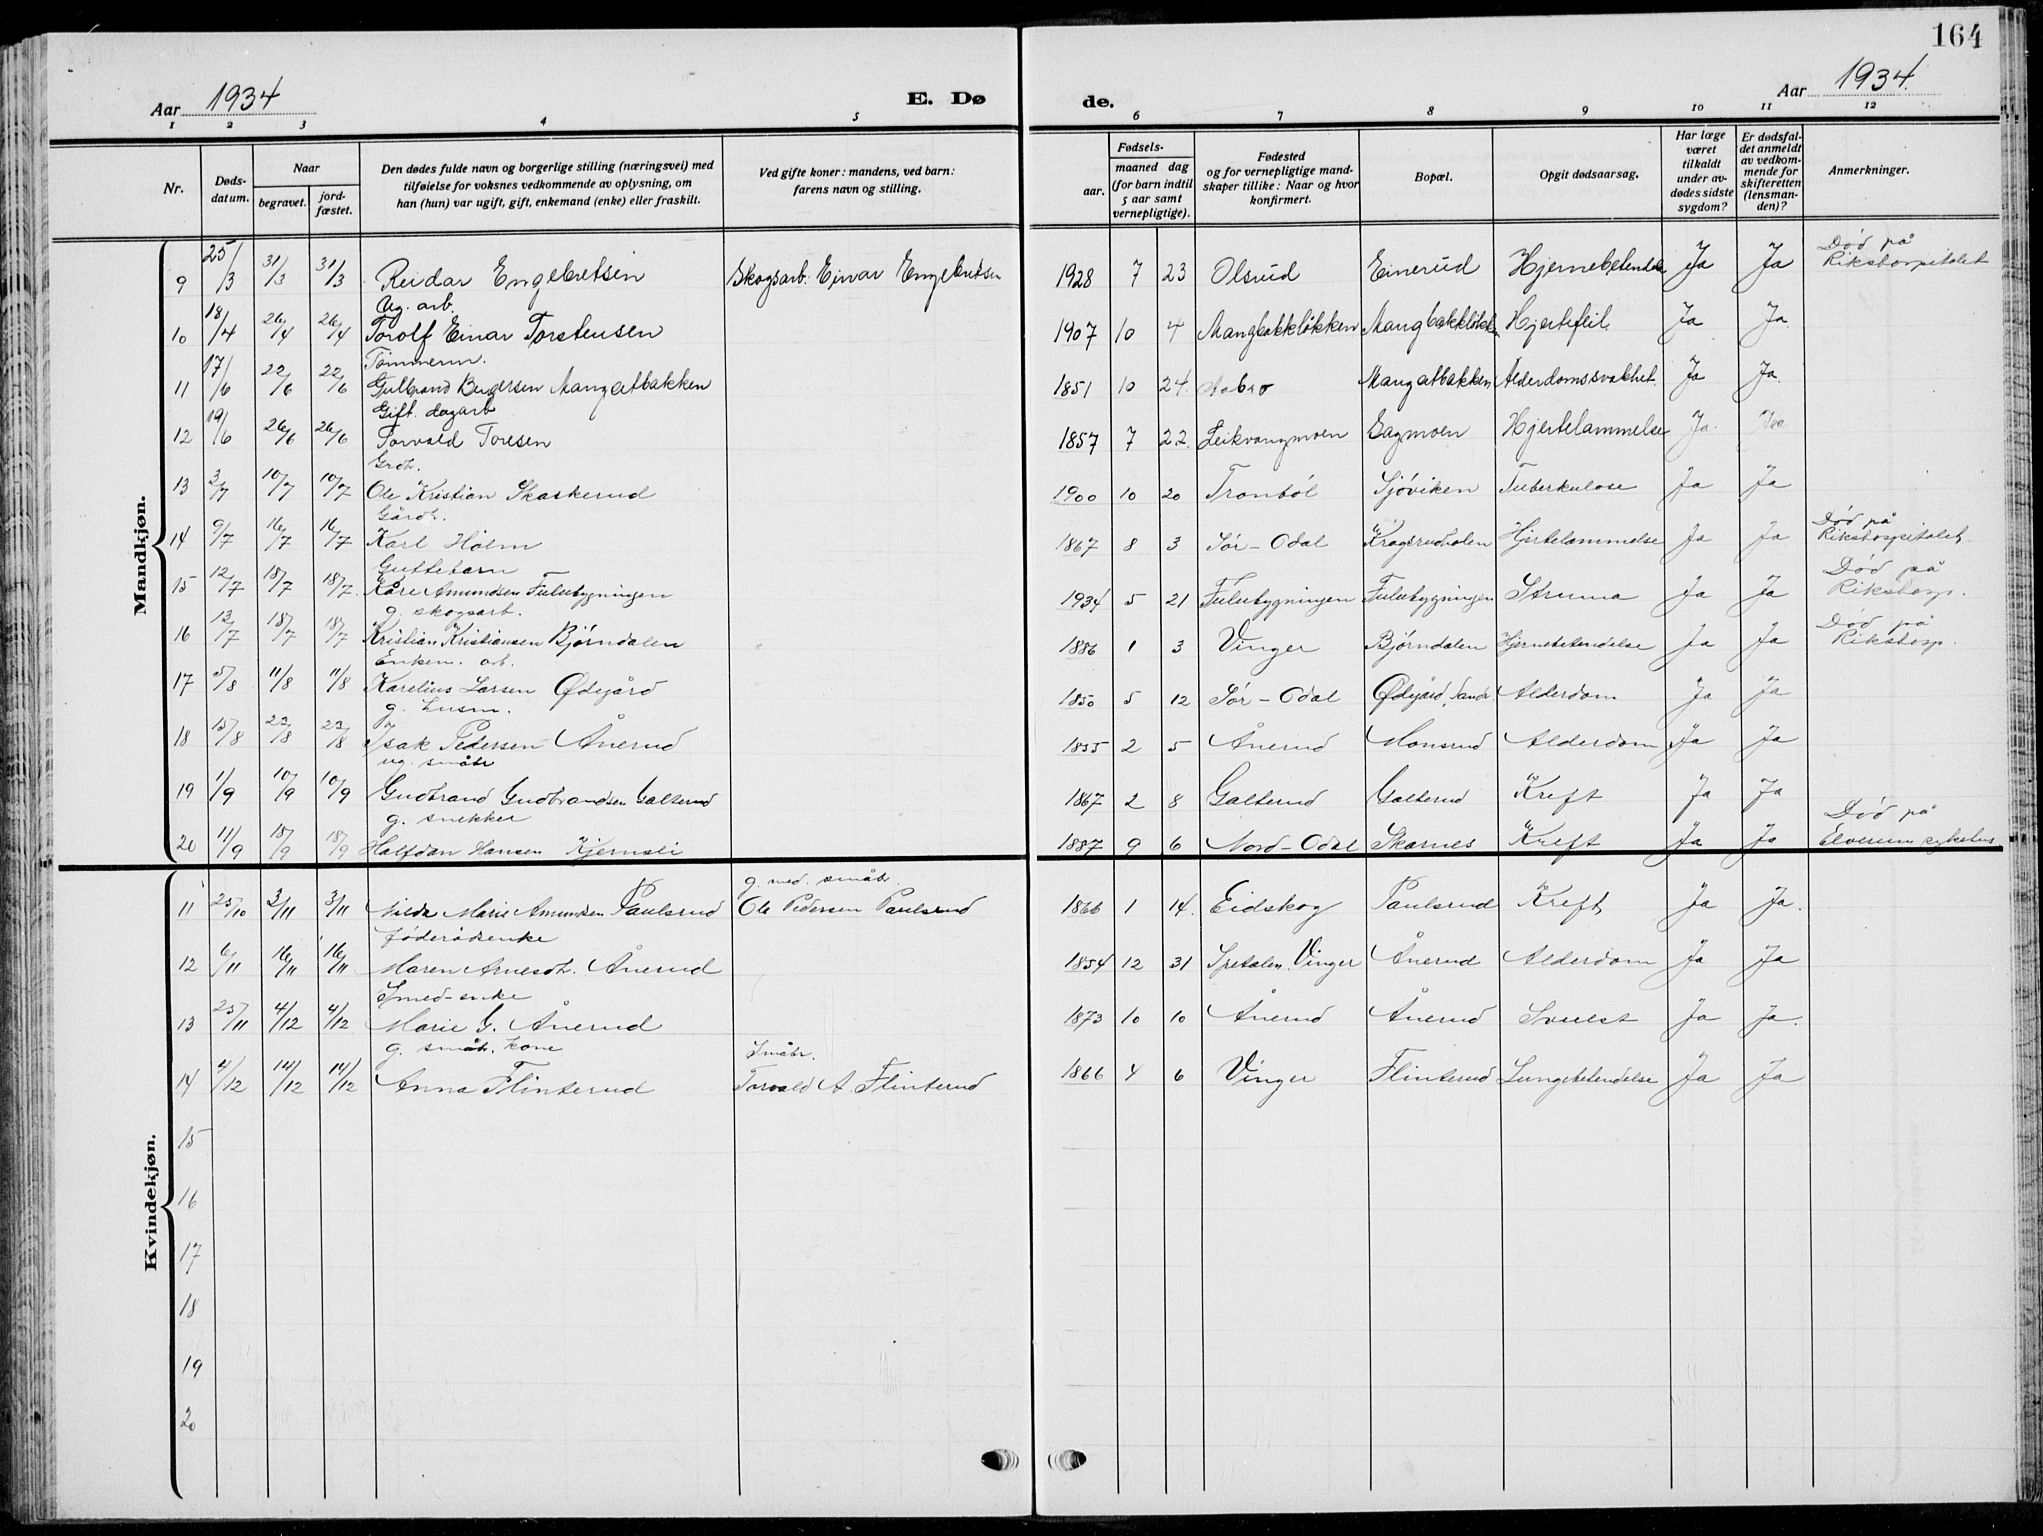 164
Aar 1934
E. Dø
de.
Aar 1934.
1 2 3 4 5 6 7 8 9 10 11 12
Nr.
Dødsdatum.
Naar
begravet.
jordfæstet.
Den dødes fulde navn og borgerlige stilling (næringsvei) med
tilføielse for voksnes vedkommende av oplysning, om
han (hun) var ugift, gift, enkemand (enke) eller fraskilt.
Ved gifte koner: mandens, ved barn:
farens navn og stilling.
Fødsels-
aar.
maaned dag
(for barn indtil
5 aar samt
vernepligtige).
Fødested
og for vernepligtige mand-
skaper tillike: Naar og hvor
konfirmert.
Bopæl.
Opgit dødsaarsag.
Har læge
været
tilkaldt
under av-
dødes sidste
sygdom?
Er dødsfal-
det anmeldt
av vedkom-
mende for
skifteretten
(lensman-
den)?
Anmerkninger.
Mandkjøn.
9 25/3 31/3 31/3 Reidar Engebretsen Skogsarb. Einar Engebretsen 1928 7 23 Olsrud Einerud Hjernebetendelse Ja Ja Død på Rikshospitalet
Ug. arb.
10 18/4 26/4 26/4 Torolf Einar Torstensen 1907 10 4 Mangbakkløkken Mangbakkløkken Hjertefeil Ja Ja
Tømmerm.
11 17/6 22/6 22/6 Gulbrand Birgersen Mangelbakken 1851 10 24. Aabro Alderdomssvakhet. Ja Ja.
Gift. dagarb
12 19/6 26/6 26/6 Torvald Toresen 1857 7 22. Leikvangmoen Sagmoen Hjertelammelse Ja.
Grdb.
13 3/7 10/7 10/7 Ole Kristian Skaskerud 1900 10 20 Tronbøl Sjøviken Tuberkulose Ja Ja
Gårdb.
14 9/7 16/7 16/7 Karl Holm 1867 8 3 Sør-Odal Hjertelammelse Ja Ja Død på Rikshospitalet
Guttebarn
15 12/7 18/7 18/7. Kåre Amundsen Fulubygningen 1934 5 21 Fulubygningen Fulubygningen Struma Ja Ja Død på Rikshosp.
g. skogsarb.
16 13/7 18/7 18/7 Kristian Kristiansen Bjørndalen 1886 1 3 Vinger Bjørndalen Hjernebetendelse Ja Ja Død på Rikshosp.
Enkem. arb.
17 5/8 11/8 11/8 Karelius Larsen Ødegård 1850 5 12 Sør-Odal Ødegård, Alderdom Ja Ja
g. husm.
18 15/8 22/8 22/8 Isak Pedersen Ånerud 1855 2 5 Ånerud Monsrud Alderdom Ja Ja
ug. småbr
19 1/9 10/9 10/9 Gudbrand Gudbrandsen Galterud 1867 2 8 Galterud Galterud Kreft Ja Ja
g. snekker
20 11/9 18/9 18/9 Halfdan Hansen Kjernsli 1887 9 6 Nord-Odal Skarnes Kreft Ja Ja Død på Elverum sykehus
Kvindekjøn.
g. med småbr.
11 25/10 3/11 3/11 Marie Amundsen Paulsrud Ole Pedersen Paulsrud 1866 1 14. Eidskog Paulsrud Kreft Ja Ja.
føderådsenke
12 6/11 16/11 16/11 Maren Arnesdt. Ånerud 1854 12 31 Spetalen. Vinger Ånerud Alderdom Ja Ja
Smed-enke
13 25/11 4/12 4/12 Marie G. Ånerud 1873 10 10 Ånerud Ånerud Svulst Ja Ja.
g. småbr. kone Småbr.
14 4/12 14/12 14/12 Anna Flinterud Torvald A. Flinterud 1866 4 6 Vinger Flinterud Lungebetendelse Ja Ja
15
16
17
18
19
20